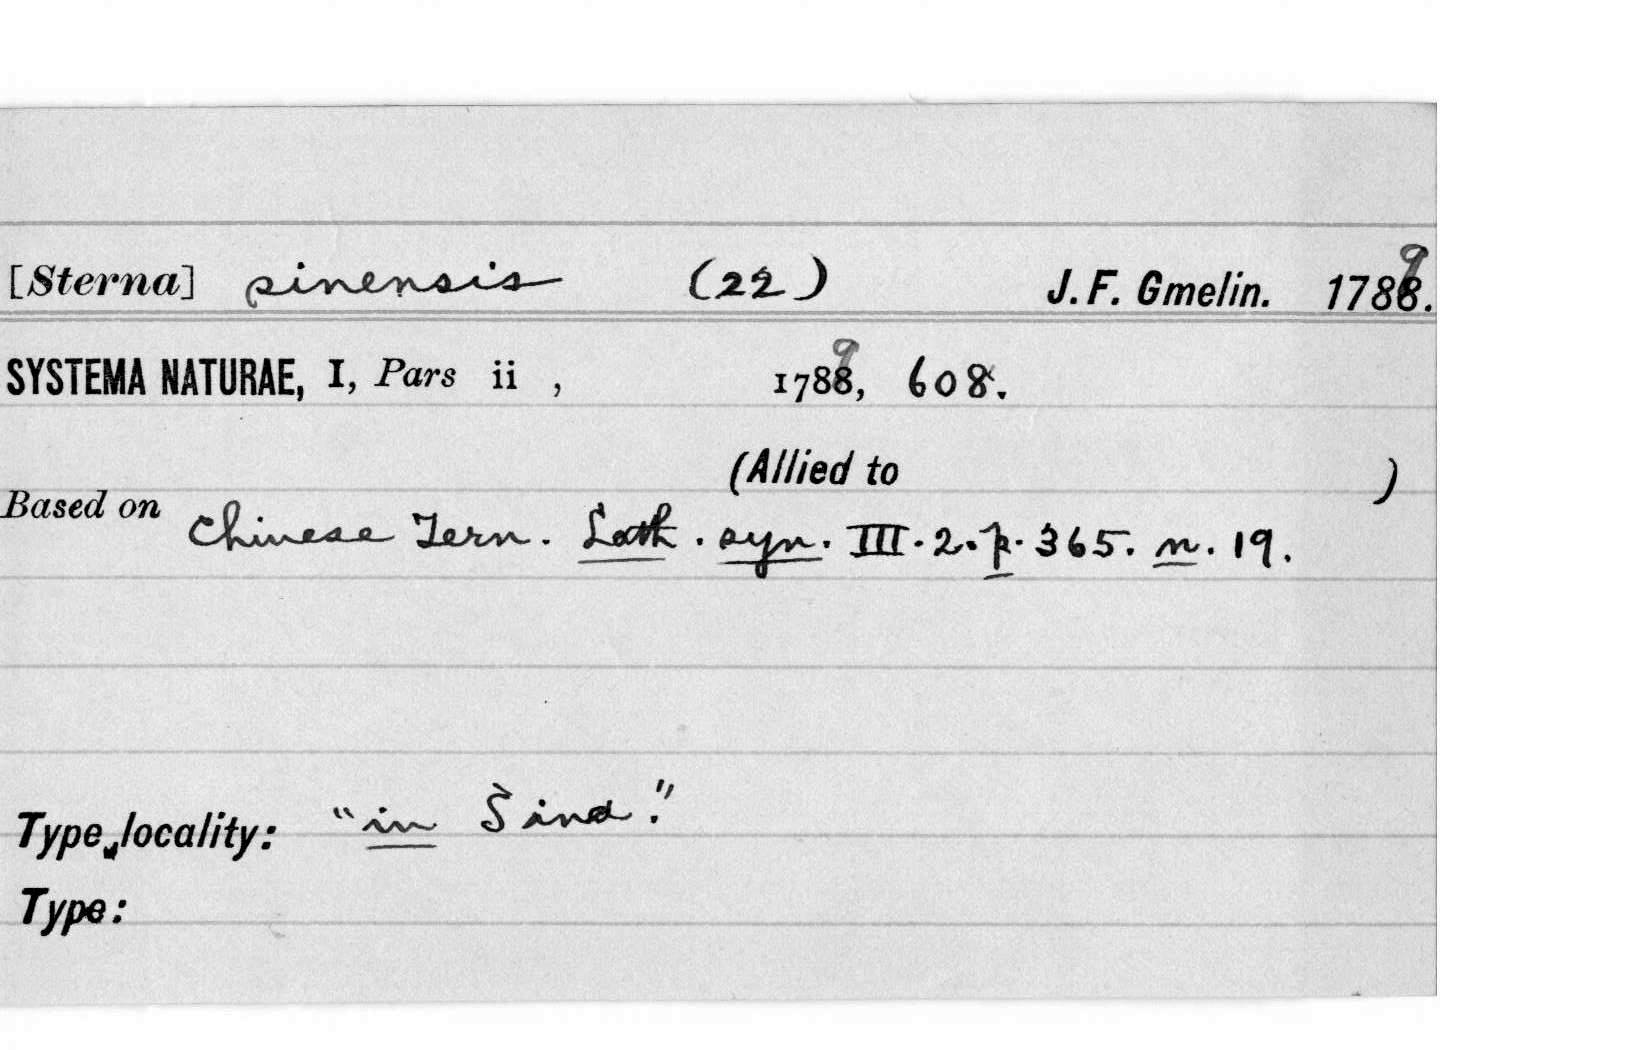 [Sterna] sinensis (22) J. F. Gmelin. 1789.
SYSTEMA NATURAE, I, Pars ii , 1789, 608.
(Allied to )
Based on Chinese Tern. Lath. syn. III. 2. p. 365. n. 19.
Type locality: "in Sina."
Type: